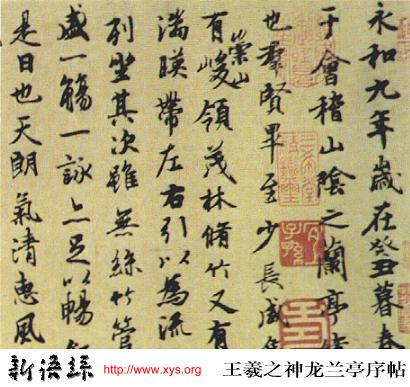 永和九年歲在癸丑暮春
于會稽山陰之蘭亭
也羣賢畢至少長咸
有崇山峻領茂林脩竹又有
湍暎帶左右引以為流
列坐其次雖無絲竹管
盛一觴一詠亦足以暢
是日也天朗氣清惠風
新语丝 http://www.xys.org 王羲之神龙兰亭序帖